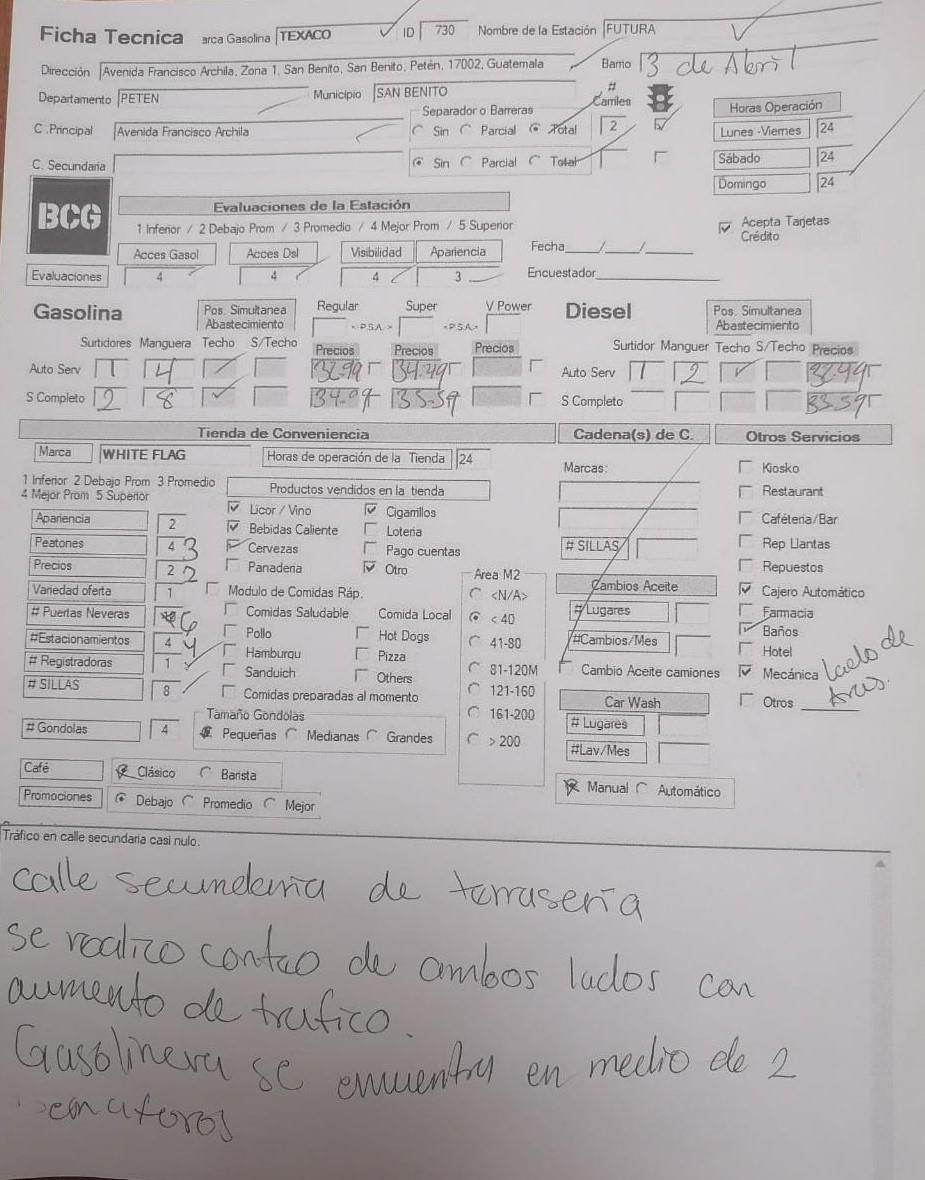 Ficha Tecnica arca Gasolina TEXACO ID 730 Nombre de la Estación FUTURA
Dirección Avenida Francisco Archila, Zona 1, San Benito, San Benito, Petén, 17002, Guatemala Barrio 3 de Abril
Departamento PETEN Municipio SAN BENITO # Carriles
Separador o Barreras Horas Operación
C .Principal Avenida Francisco Archila Sin Parcial Total 2 Lunes -Viernes 24
C. Secundaria Sin Parcial Total Sábado 24
Domingo 24
BCG Evaluaciones de la Estación
1 Inferior / 2 Debajo Prom / 3 Promedio / 4 Mejor Prom / 5 Superior
Acepta Tarjetas Crédito
Acces Gasol Acces Dsl Visibilidad Apariencia Fecha___/___/___
Evaluaciones 4 4 4 3 Encuestador
Gasolina Pos. Simultanea Abastecimiento Regular Super V Power Diesel Pos. Simultanea Abastecimiento
<-P.S.A.-> <-P.S.A.->
Surtidores Manguera Techo S/Techo Precios Precios Precios Surtidor Manguer Techo S/Techo Precios
Auto Serv 1 4 32.99 34.49 Auto Serv 1 2 32.49
S Completo 2 8 34.09 35.59 S Completo 33.59
Tienda de Conveniencia Cadena(s) de C. Otros Servicios
Marca WHITE FLAG Horas de operación de la Tienda 24 Marcas: Kiosko
1 Inferior 2 Debajo Prom 3 Promedio
4 Mejor Prom 5 Superior
Productos vendidos en la tienda Restaurant
Apariencia 2 Licor / Vino Cigarrillos Caféteria/Bar
Peatones 4 3 Bebidas Caliente Loteria # SILLAS Rep Llantas
Precios 2 2 Cervezas Pago cuentas Repuestos
Panaderia Otro Area M2
Variedad oferta 1 Modulo de Comidas Ráp. <N/A> Cambios Aceite Cajero Automático
# Puertas Neveras 6 Comidas Saludable Comida Local < 40 # Lugares Farmacia
#Estacionamientos 4 4 Pollo Hot Dogs 41-80 #Cambios/Mes Baños
# Registradoras 1 Hamburqu Pizza Hotel
# SILLAS 8 Sanduich Others 81-120M Cambio Aceite camiones Mecánica
Comidas preparadas al momento 121-160 Car Wash Otros
# Gondolas 4 Tamaño Gondolas 161-200 # Lugares
Pequeñas Medianas Grandes > 200 #Lav/Mes
Café Clásico Barista Manual Automático
Promociones Debajo Promedio Mejor
Tráfico en calle secundaria casi nulo.
calle secundaria de terraseria
se realizo conteo de ambos lados con
aumento de trafico.
Gasolinera se encuentra en medio de 2
semaforos